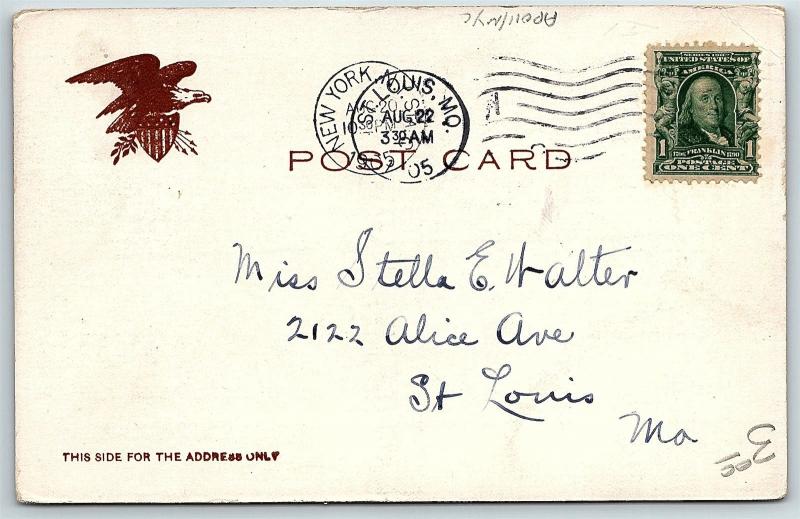 NEW YORK, N.
AUG 20
10 30 PM
1905
ST. LOUIS, MO.
AUG 22
3 30 AM
05
SERIES 1902
UNITED STATES OF
AMERICA
1 1
1706 FRANKLIN 1790
POSTAGE
ONE CENT
POST CARD
Miss Stella E. Walter
2122 Alice Ave
St Louis
Mo
THIS SIDE FOR THE ADDRESS ONLY